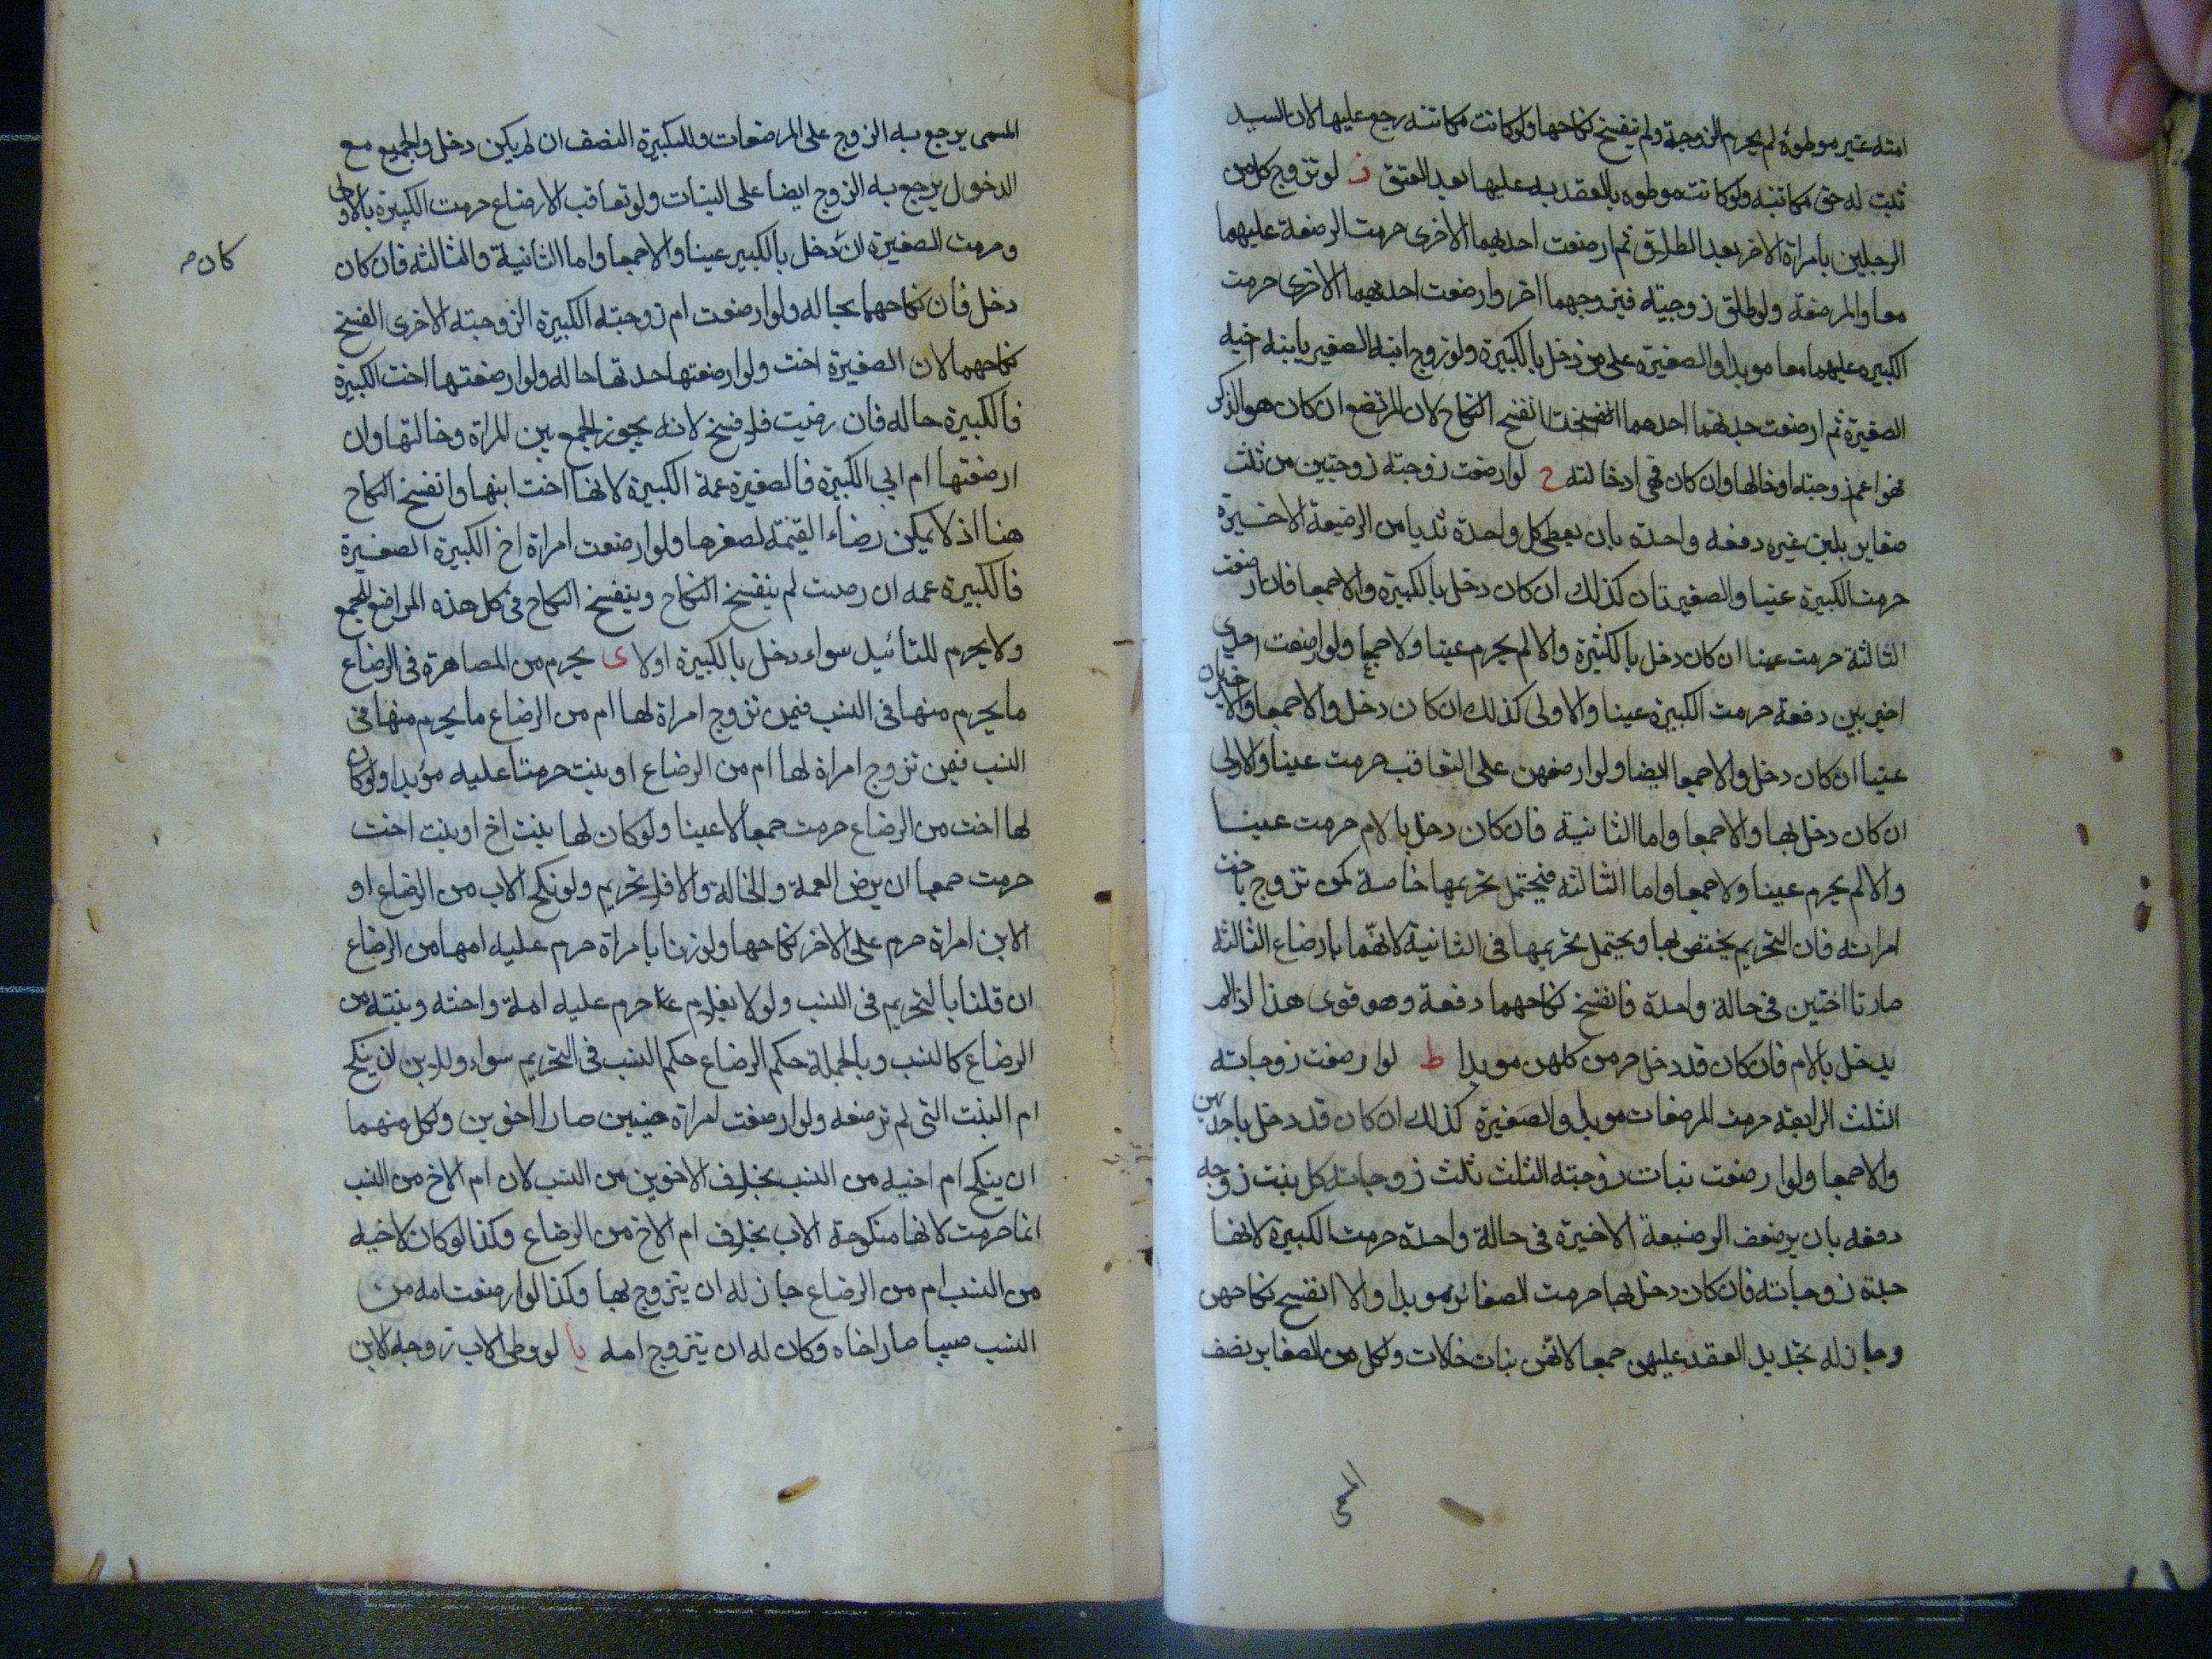 امته غير موطوءة لم يحرم الزوجة ولم ينفسخ نكاحها ولو كانت مكاتبته رجع عليها لان السيد
ثبت له حق مكاتبته ولو كانت موطوه بالعقد به عليها بعد العتق ز لو تزوج كل من
الرجلين بامراة الاخر بعد الطلاق ثم ارضعت احديهما الاخرى حرمت المرضعة عليهما
معا والمرضعة ولو طلق زوجتيه فيزوجهما اخر وارضعت احديهما الاخرى حرمت
الكبيره عليهما معا موبدا والصغيرة على من دخل بالكبيرة ولو زوج ابنه الصغير بابنه اخيه
الصغيرة ثم ارضعت جدتهما احدهما انفسخ النكاح لان المرتضع ان كان هو الذكر
فهو اعم زوجته او خالها وان كان فهي اد خالته ح لو ارضعت زوجته زوجتين من ثلث
صغاير بلبن غيره دفعه واحدة بان يعطى كل واحدة ثديا من الرضيعة الاخيرة
حرمت الكبيرة عينا والصغيرتان كذلك ان كان دخل بالكبيرة والا جمعا فان ارضعت
الثالثة حرمت عينا ان كان دخل بالكبيرة والا لم يحرم عينا ولا جمعا ولو ارضعت احدى
اخيرتين دفعة حرمت الكبيرة عينا والاولى كذلك ان كان دخل والا جمعا والاخيرتان
عينا ان كان دخل والا جمعا ايضا ولو ارضعهن على التعاقب حرمت عينا والاولى
ان كان دخل بها والا جمعا واما الثانية فان كان دخل بالام حرمت عينا
والا لم يحرم عينا ولا جمعا واما الثالثه فيحتمل تحريمها خاصة كمن تزوج باخت
امراته فان التحريم يختص بها ويحتمل تحريمها في الثانية لانهما بارضاع الثالثه
صارتا اختين في حالة واحدة فانفسخ نكاحهما دفعة وهو قوى هذا اذا لم
يدخل بالام فان كان قد دخل حرمن كلهن موبدا ط لو ارضعت زوجاته
الثلث الرابعه حرمت المرضعات موبدا والصغيرة كذلك ان كان قد دخل باحديهن
والا جمعا ولو ارضعت بنات زوجته الثلث ثلث زوجاته كل بنت زوجه
دفعه بان يرضعن الرضيعة الاخيرة في حالة واحدة حرمت الكبيرة لانها
جدة زوجاته فان كان دخل بها حرمت الصغائر موبدا والا انفسخ نكاحهن
وجاز له تجديد العقد عليهن جمعا لانهن بنات خالات ولكل من الصغاير نصف
المسمى
المسمى يرجع به الزوج على المرضعات وللكبيرة النصف ان لم يكن دخل والجميع مع
الدخول يرجع به الزوج ايضا على البنات ولو تعاقب الارضاع حرمت الكبيرة بالاولى
وحرمت الصغيرة ان دخل بالكبير عينا والا جمعا واما الثانية والثالثه فان كان
كان
دخل فان نكاحهما بحاله ولو ارضعت ام زوجته الكبيرة الزوجته الاخرى انفسخ
نكاحهما لان الصغيرة اخت ولو ارضعتها جدتها حاله ولو ارضعتها اخت الكبيرة
فالكبيرة خاله فان رضيت فلا فسخ لانه يجوز الجمع بين المراة وخالتها وان
ارضعتها ام ابي الكبيرة فالصغيرة عمة الكبيرة لانها اخت ابيها وانفسخ النكاح
هنا اذ لا يمكن رضاء القيمة لصغرها ولو ارضعت امراة اخ الكبيرة الصغيرة
فالكبيرة عمه ان رضيت لم ينفسخ النكاح وينفسخ النكاح في كل هذه المواضع للجمع
ولا يحرم للتأبيد سواء دخل بالكبيرة او لا ى يحرم من المصاهرة في الرضاع
ما يحرم منها في النسب فيمن تزوج امراة لها ام من الرضاع ما يحرم منها في
النسب فمن تزوج امراة لها ام من الرضاع او بنت حرمتا عليه مؤبدا ولو كان
لها اخت من الرضاع حرمت جمعا لا عينا ولو كان لها بنت اخ او بنت اخت
حرمت جمعا ان يرض العمة والخالة والا فلا تحريم ولو نكح الاب من الرضاع او
الابن امراة حرم على الاخر نكاحها ولو زنا بامراة حرم عليه امها من الرضاع
ان قلنا بالتحريم في النسب ولو لاط بغلام حرم عليه امه واخته وبنته من
الرضاع كالنسب وبالجملة حكم الرضاع حكم النسب في التحريم سواء وللابن ان ينكح
ام البنت التي لم ترضعه ولو ارضعت امراة صبيين صارا اخوين ولكل منهما
ان ينكح ام اخيه من النسب بخلاف الاخوين من النسب لان ام الاخ من النسب
انما حرمت لانها منكوحة الاب بخلاف ام الاخ من الرضاع وكذا لو كان لاخيه
من النسب ام من الرضاع جاز له ان يتزوج بها وكذا لو ارضعت امه من
النسب صبيا صار اخاه وكان له ان يتزوج امه يا لو وطى الاب زوجة الابن